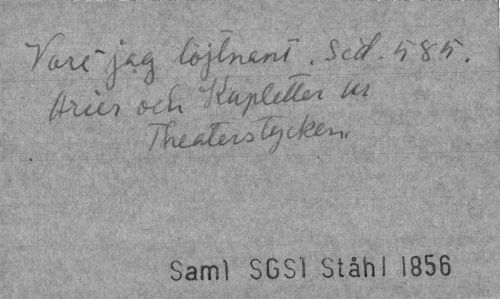 Vore jag löjtnant. Sid. 585.
Arier och Kupletter ur
Theaterstycken.
Saml SGS1 Ståhl 1856